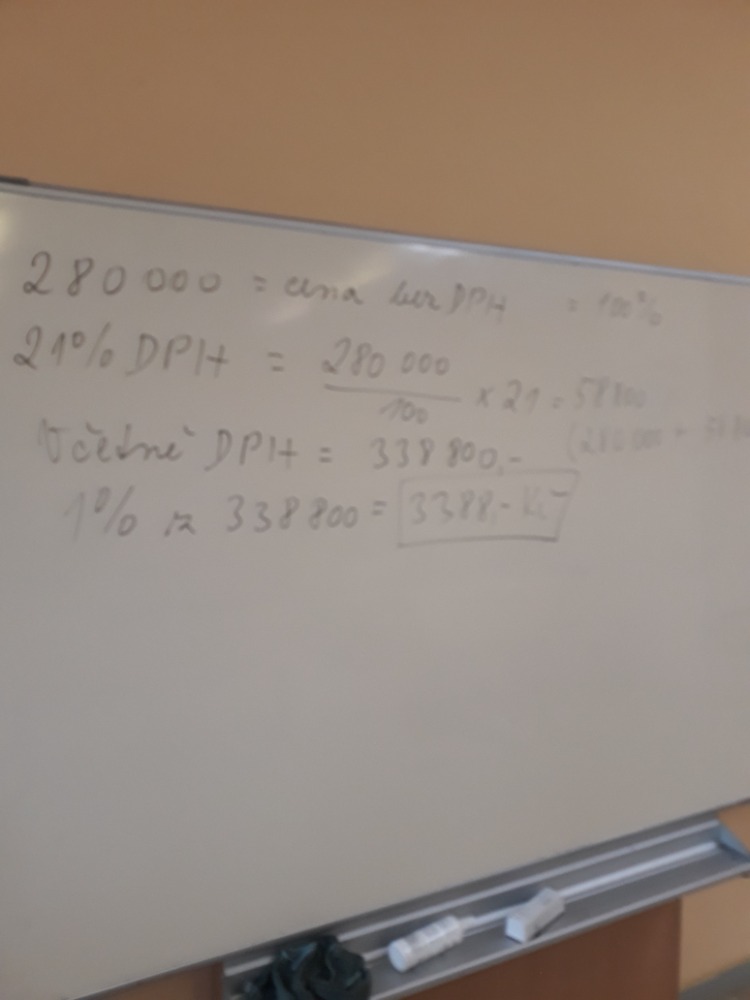 280 000 = cena bez DPH = 100%
21% DPH = 280 000 / 100 × 21 = 58800
(280 000 + 58
Včetně DPH = 338 800,-
1% z 338 800 = 3388,- Kč